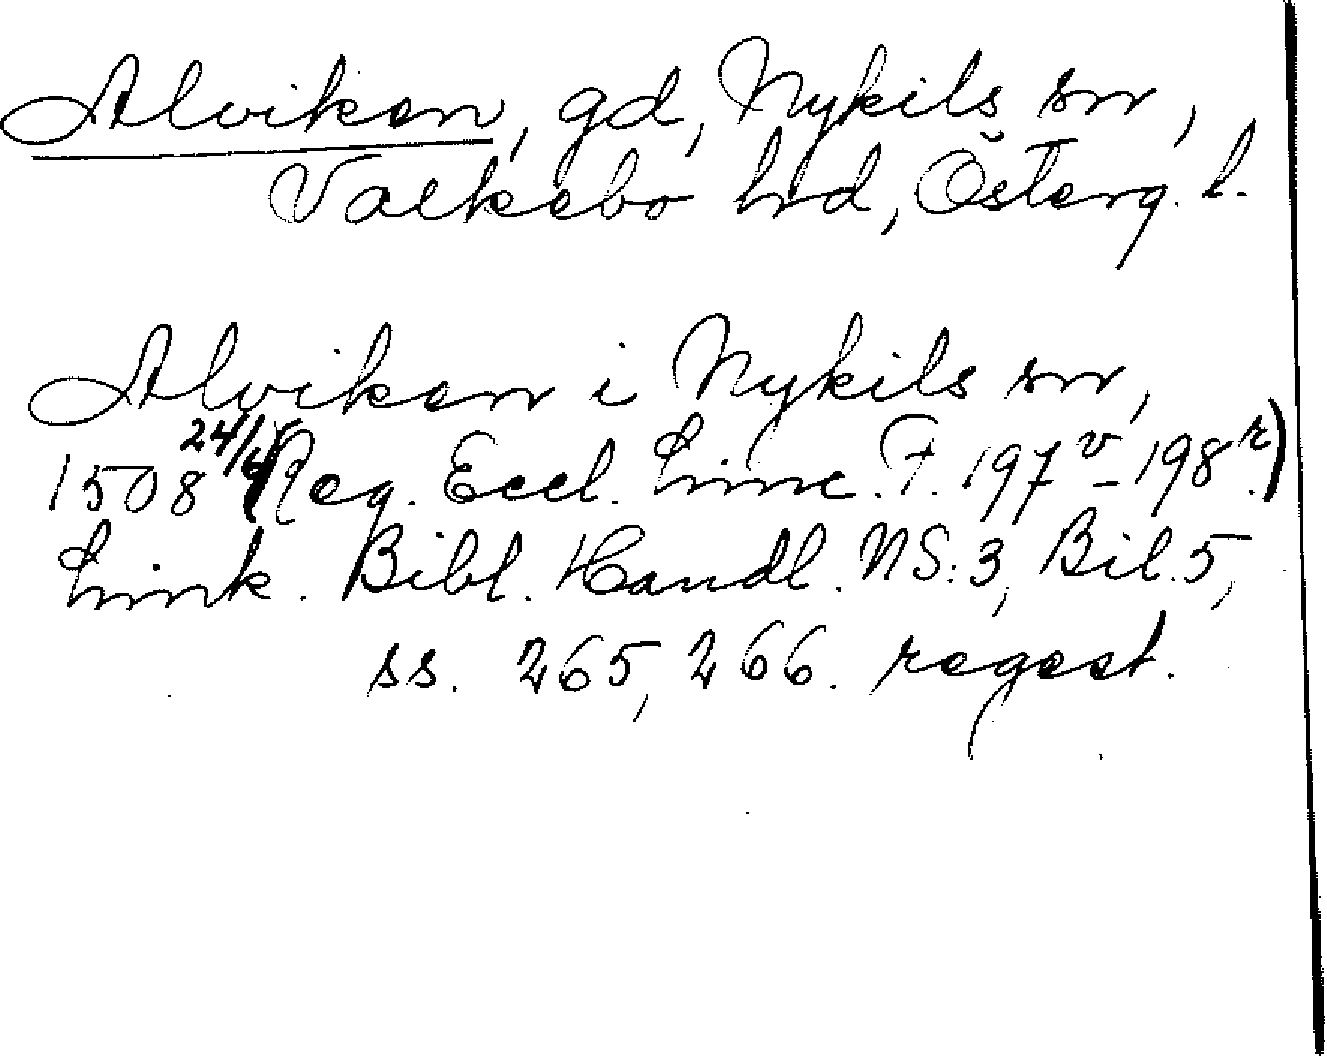 Alviken, gd, Nykils sn,
Valkebo hd, Österg. l.
Alviken i Nykils sn,
1508 24/4 (Reg. Eccl. Linc. F. 197 v - 198 r.)
Link. Bibl. Handl. NS: 3, Bil. 5,
ss. 265, 266. regest.